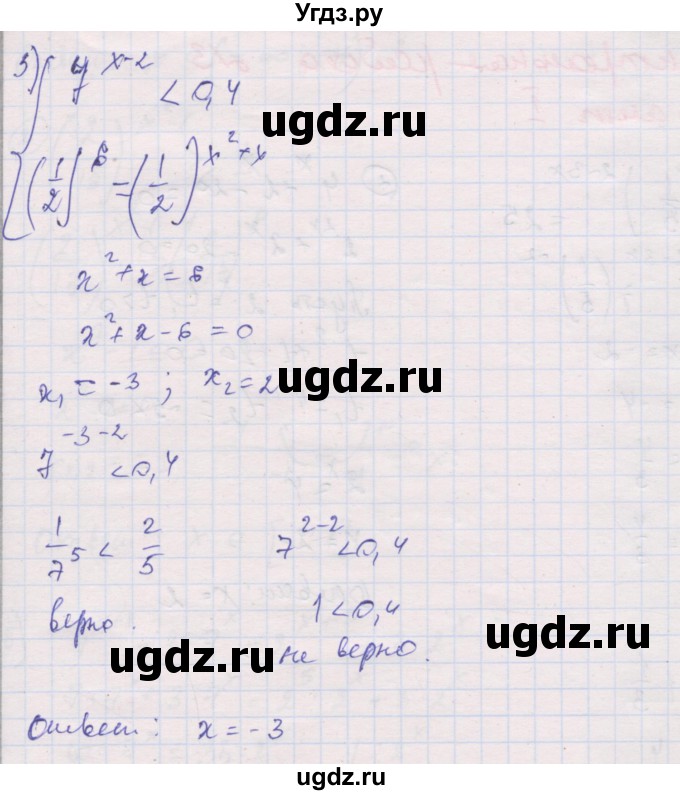 Угдз.ру
3) { 7^(x-2) < 0,4
ugdz.ru
(1/2)^6 = (1/2)^(x²+x)
ugdz.ru
x²+x=6
x²+x-6=0
x₁=-3; x₂=2
ugdz.ru
7^(-3-2) < 0,4
1/7⁵ < 2/5 7^(2-2) < 0,4
верно. 1<0,4
ugdz.ru
ugdz.ru
не верно.
Ответ: x=-3
ugdz.ru